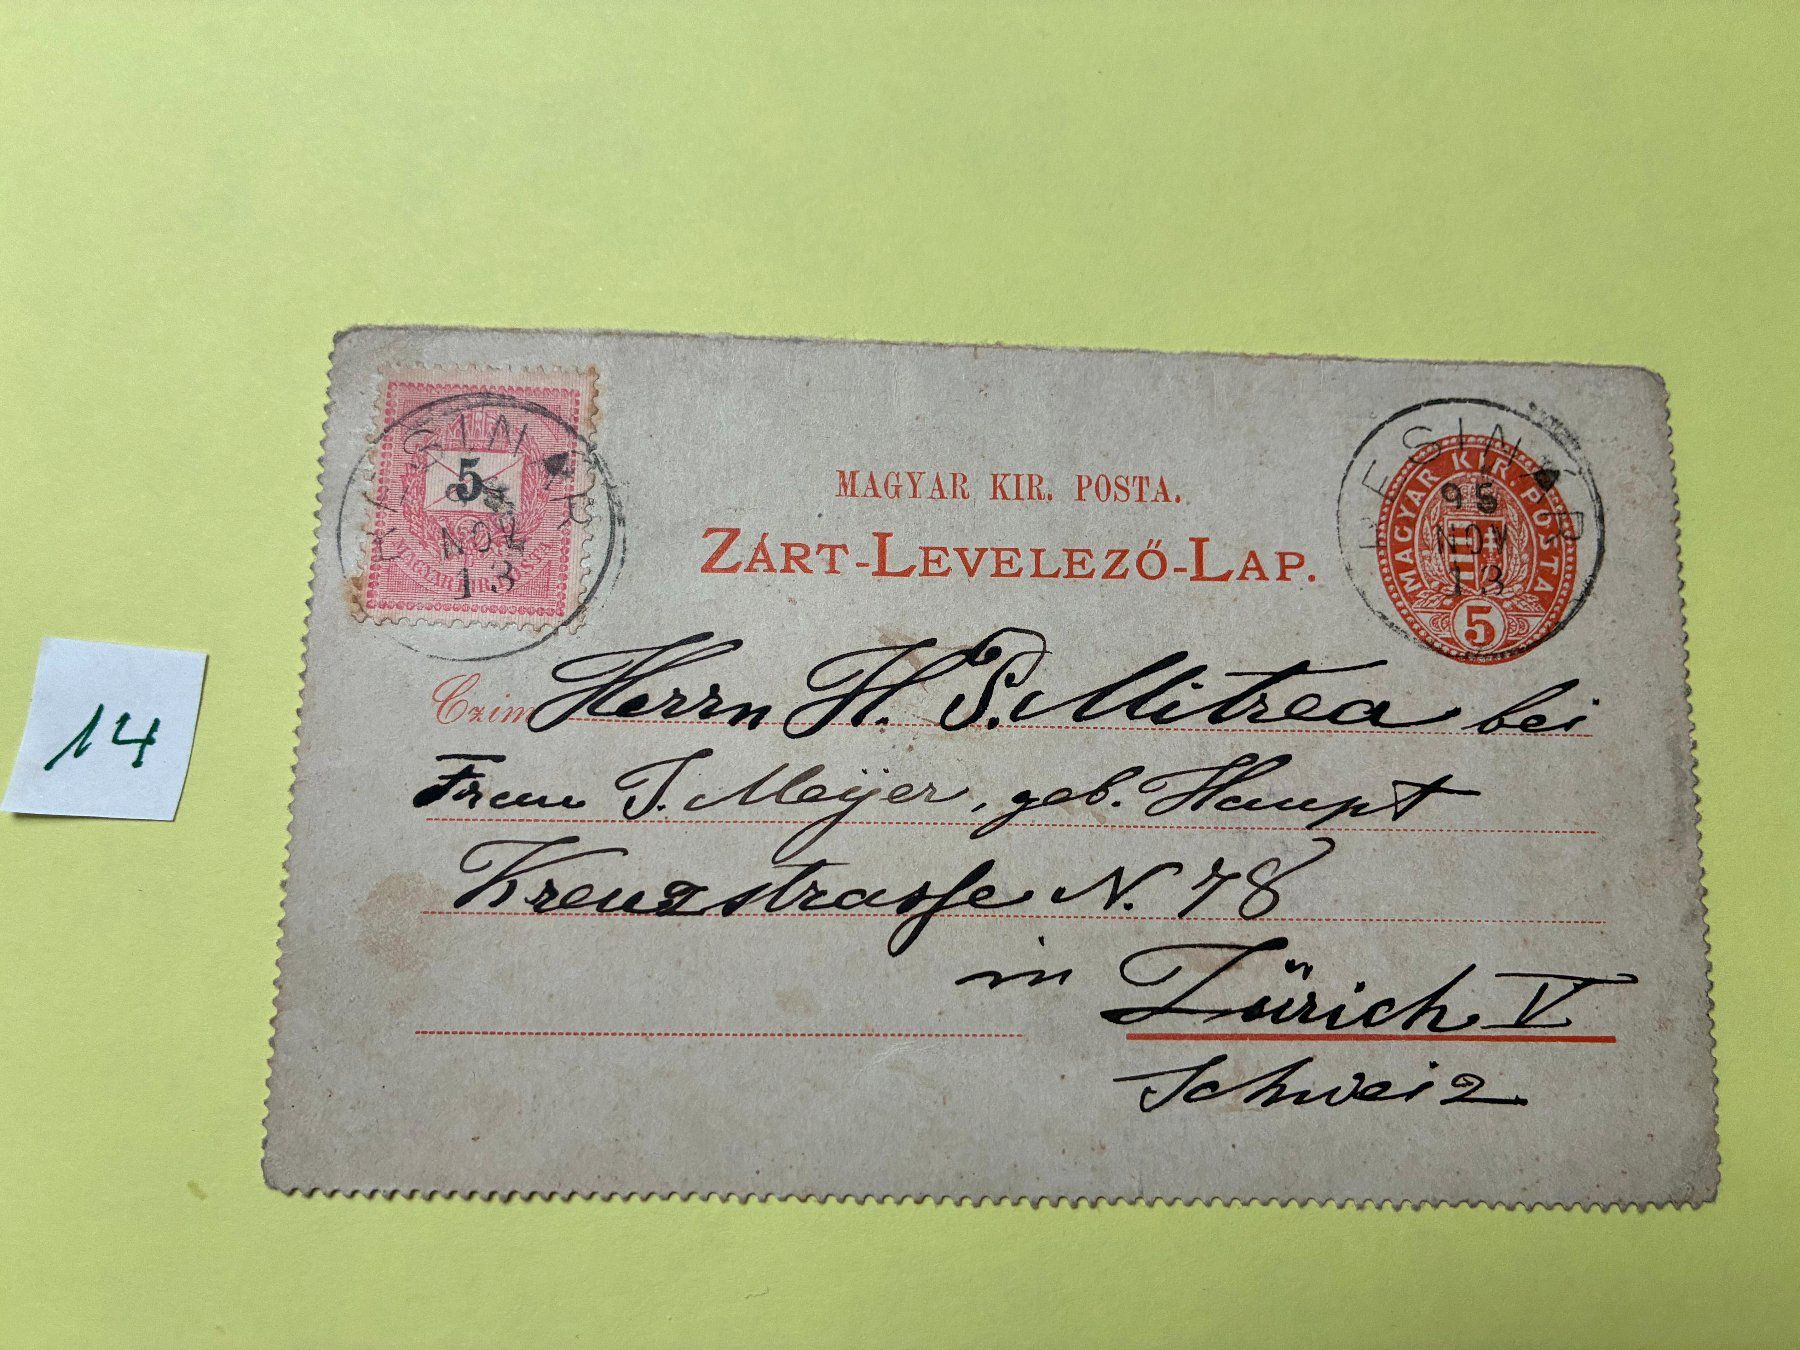 14
5
MAGYAR KIR. POSTA
RESINÁR
95
NOV
13
MAGYAR KIR. POSTA.
ZÁRT-LEVELEZŐ-LAP.
MAGYAR KIR. POSTA
5
RESINÁR
95
NOV
13
Czim Herrn H. P. Mitrea bei
Frau J. Meÿer, geb. Haupt
Kreuzstrasse N. 78
in Zürich V
Schweiz